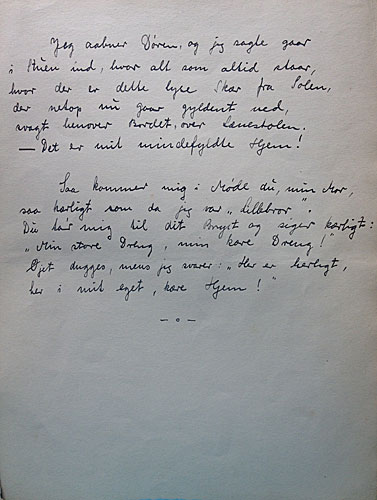 Jeg aabner Døren, og jeg sagte gaar
i Stuen ind, hvor alt som altid staar,
hvor der er dette lyse Skær fra Solen,
der netop nu gaar gyldent ned,
svagt henover Bordet, over Lænestolen.
— Det er mit mindefyldte Hjem!
Saa kommer mig i Møde du, min Mor,
saa kærligt som da jeg var "Lillebror".
Du ta'r mig til dit Bryst og siger kærligt:
"Min store Dreng, min kære Dreng!"
Øjet dugges, mens jeg svarer: "Her er herligt,
her i mit eget, kære Hjem!"
— o —